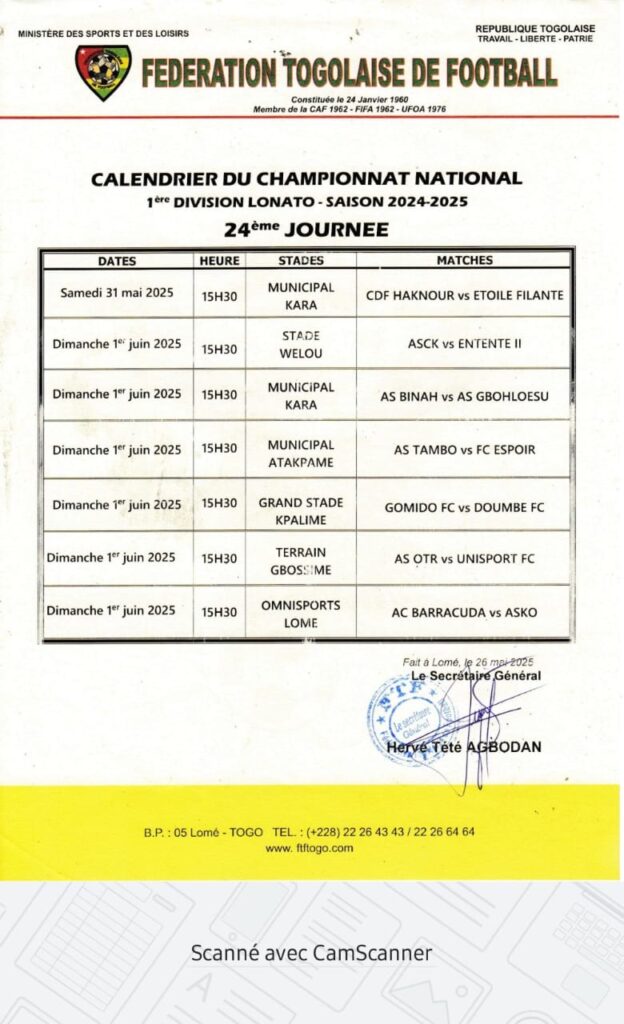 MINISTÈRE DES SPORTS ET DES LOISIRS
REPUBLIQUE TOGOLAISE
TRAVAIL - LIBERTE - PATRIE
FEDERATION TOGOLAISE DE FOOTBALL
Constituée le 24 Janvier 1960
Membre de la CAF 1962 - FIFA 1962 - UFOA 1976
CALENDRIER DU CHAMPIONNAT NATIONAL
1ère DIVISION LONATO - SAISON 2024-2025
24ème JOURNEE
DATES HEURE STADES MATCHES
Samedi 31 mai 2025 15H30 MUNICIPAL KARA CDF HAKNOUR vs ETOILE FILANTE
Dimanche 1er juin 2025 15H30 STADE WELOU ASCK vs ENTENTE II
Dimanche 1er juin 2025 15H30 MUNICIPAL KARA AS BINAH vs AS GBOHLOESU
Dimanche 1er juin 2025 15H30 MUNICIPAL ATAKPAME AS TAMBO vs FC ESPOIR
Dimanche 1er juin 2025 15H30 GRAND STADE KPALIME GOMIDO FC vs DOUMBE FC
Dimanche 1er juin 2025 15H30 TERRAIN GBOSSIME AS OTR vs UNISPORT FC
Dimanche 1er juin 2025 15H30 OMNISPORTS LOME AC BARRACUDA vs ASKO
Fait à Lomé, le 26 mai 2025
Le Secrétaire Général
FTF
Le secrétaire
Général
Hervé Tété AGBODAN
B.P. : 05 Lomé - TOGO TEL. : (+228) 22 26 43 43 / 22 26 64 64
www. ftftogo.com
Scanné avec CamScanner